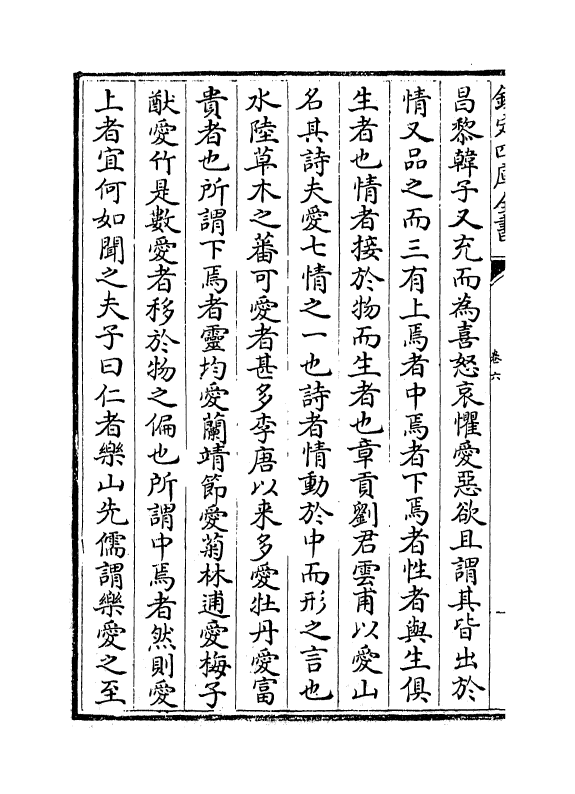 欽定四庫全書
卷六
昌黎韓子又充而為喜怒哀懼愛惡欲且謂其皆出於
情又品之而三有上焉者中焉者下焉者性者與生俱
生者也情者接於物而生者也章貢劉君雲甫以愛山
名其詩夫愛七情之一也詩者情動於中而形之言也
水陸草木之蕃可愛者甚多李唐以来多愛牡丹愛富
貴者也所謂下焉者靈均愛蘭靖節愛菊林逋愛梅子
猷愛竹是數愛者移於物之偏也所謂中焉者然則愛
上者宜何如聞之夫子曰仁者樂山先儒謂樂愛之至